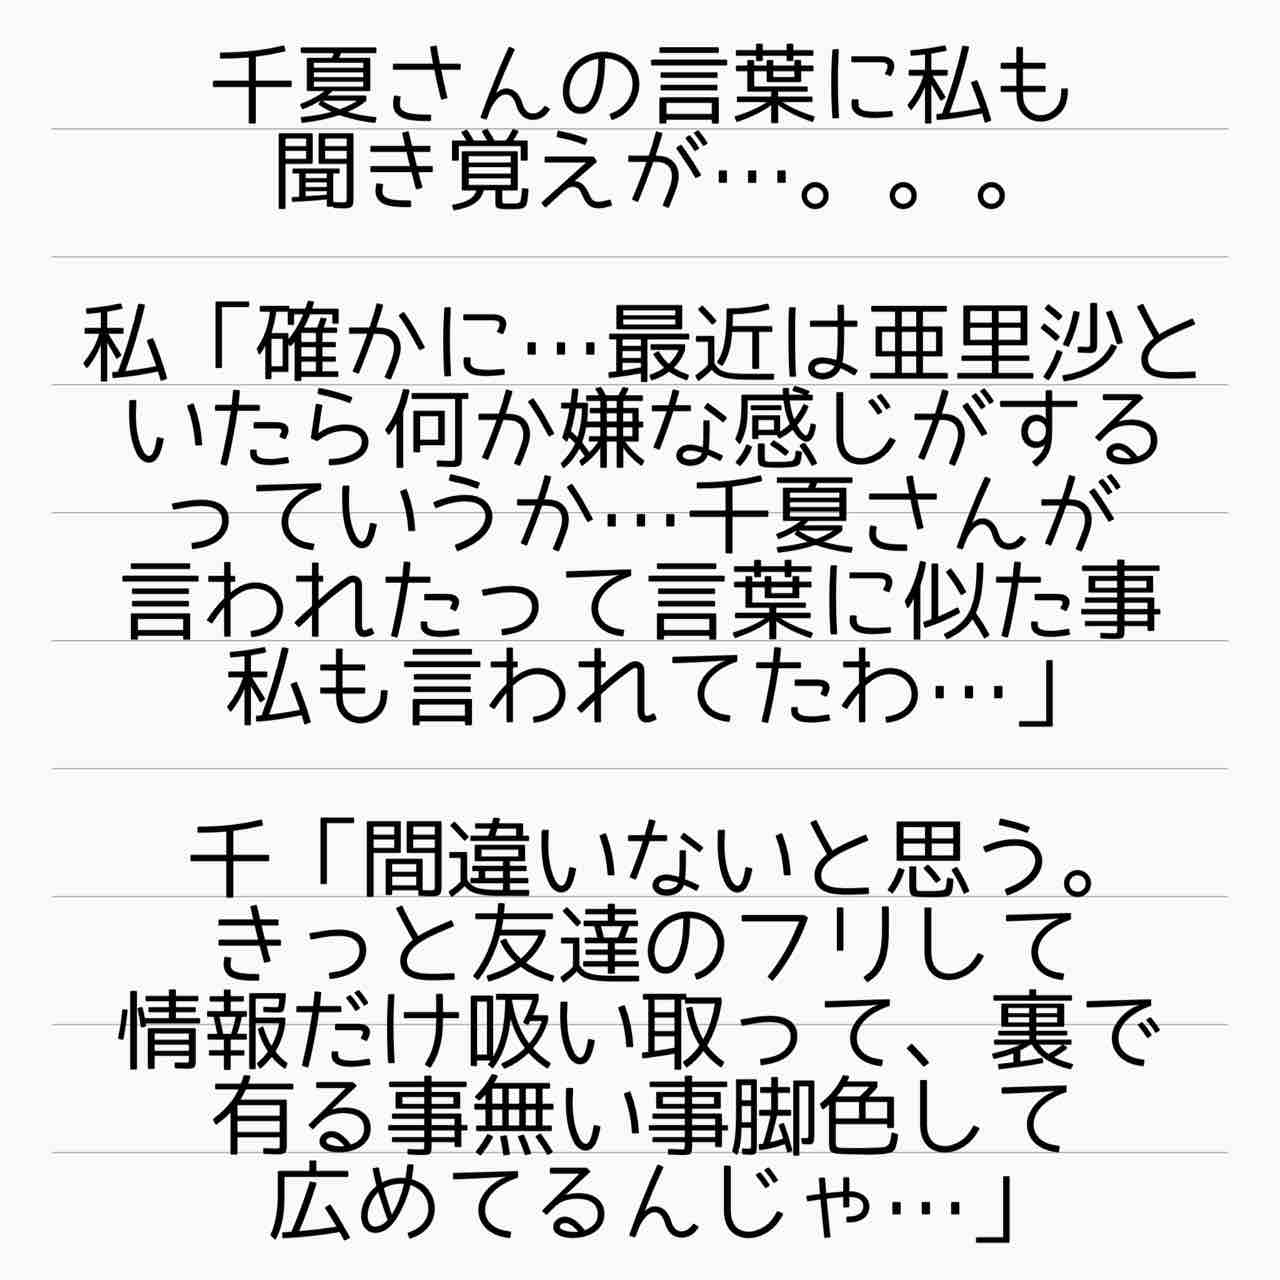 千夏さんの言葉に私も
聞き覚えが…。。。
私「確かに…最近は亜里沙と
いたら何か嫌な感じがする
っていうか…千夏さんが
言われたって言葉に似た事
私も言われてたわ…」
千「間違いないと思う。
きっと友達のフリして
情報だけ吸い取って、裏で
有る事無い事脚色して
広めてるんじゃ…」